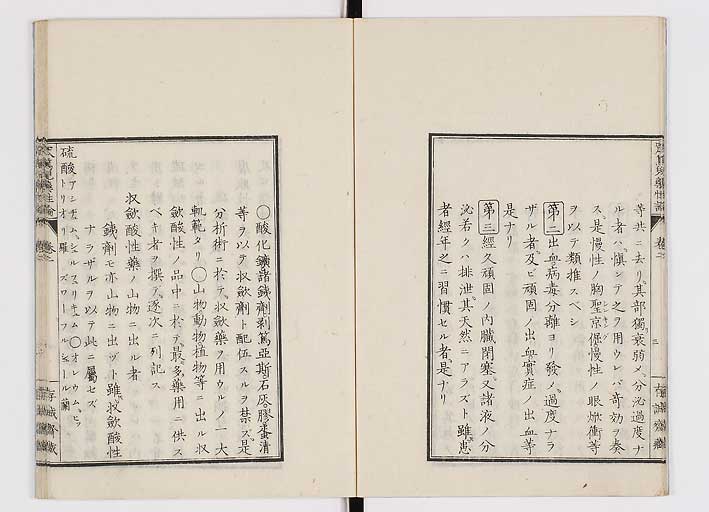 等共ニ去リ、其部獨、衰弱メ、分泌過度ナ
ル者ハ、愼シテ之ヲ用ウレバ奇効ヲ奏
ス、是慢性ノ胸聖京倔慢性ノ眼焮衝等
ヲ以テ類推スベシ
第二出血病毒分離ヨリ發メ、過度ナラ
ザル者及ビ頑固ノ出血實症ノ出血等
是ナリ
第三經久頑固ノ内臟閉塞、又諸液ノ分
泌若クハ排泄、其天然ニアラズト雖、患
者經年之ニ習慣セル者、是ナリ
〇酸化鐵諸鐵劑剥篤亜斯石灰膠蛋清
等ヲ以テ収斂劑ト配伍スルヲ禁ズ、是
分析術ニ於テ、収斂藥ヲ用ウルノ一大
軌範タリ〇山物動物植物等ニ出ル収
斂酸性ノ品中ニ於テ、最多藥用ニ供ス
ベキ者ヲ撰テ、逐次ニ列記ス
収斂酸性藥ノ山物ニ出ル者
鐵劑モ亦山物ニ出ヅト雖、収斂酸性
ナラザルヲ以テ此ニ屬セズ
硫酸